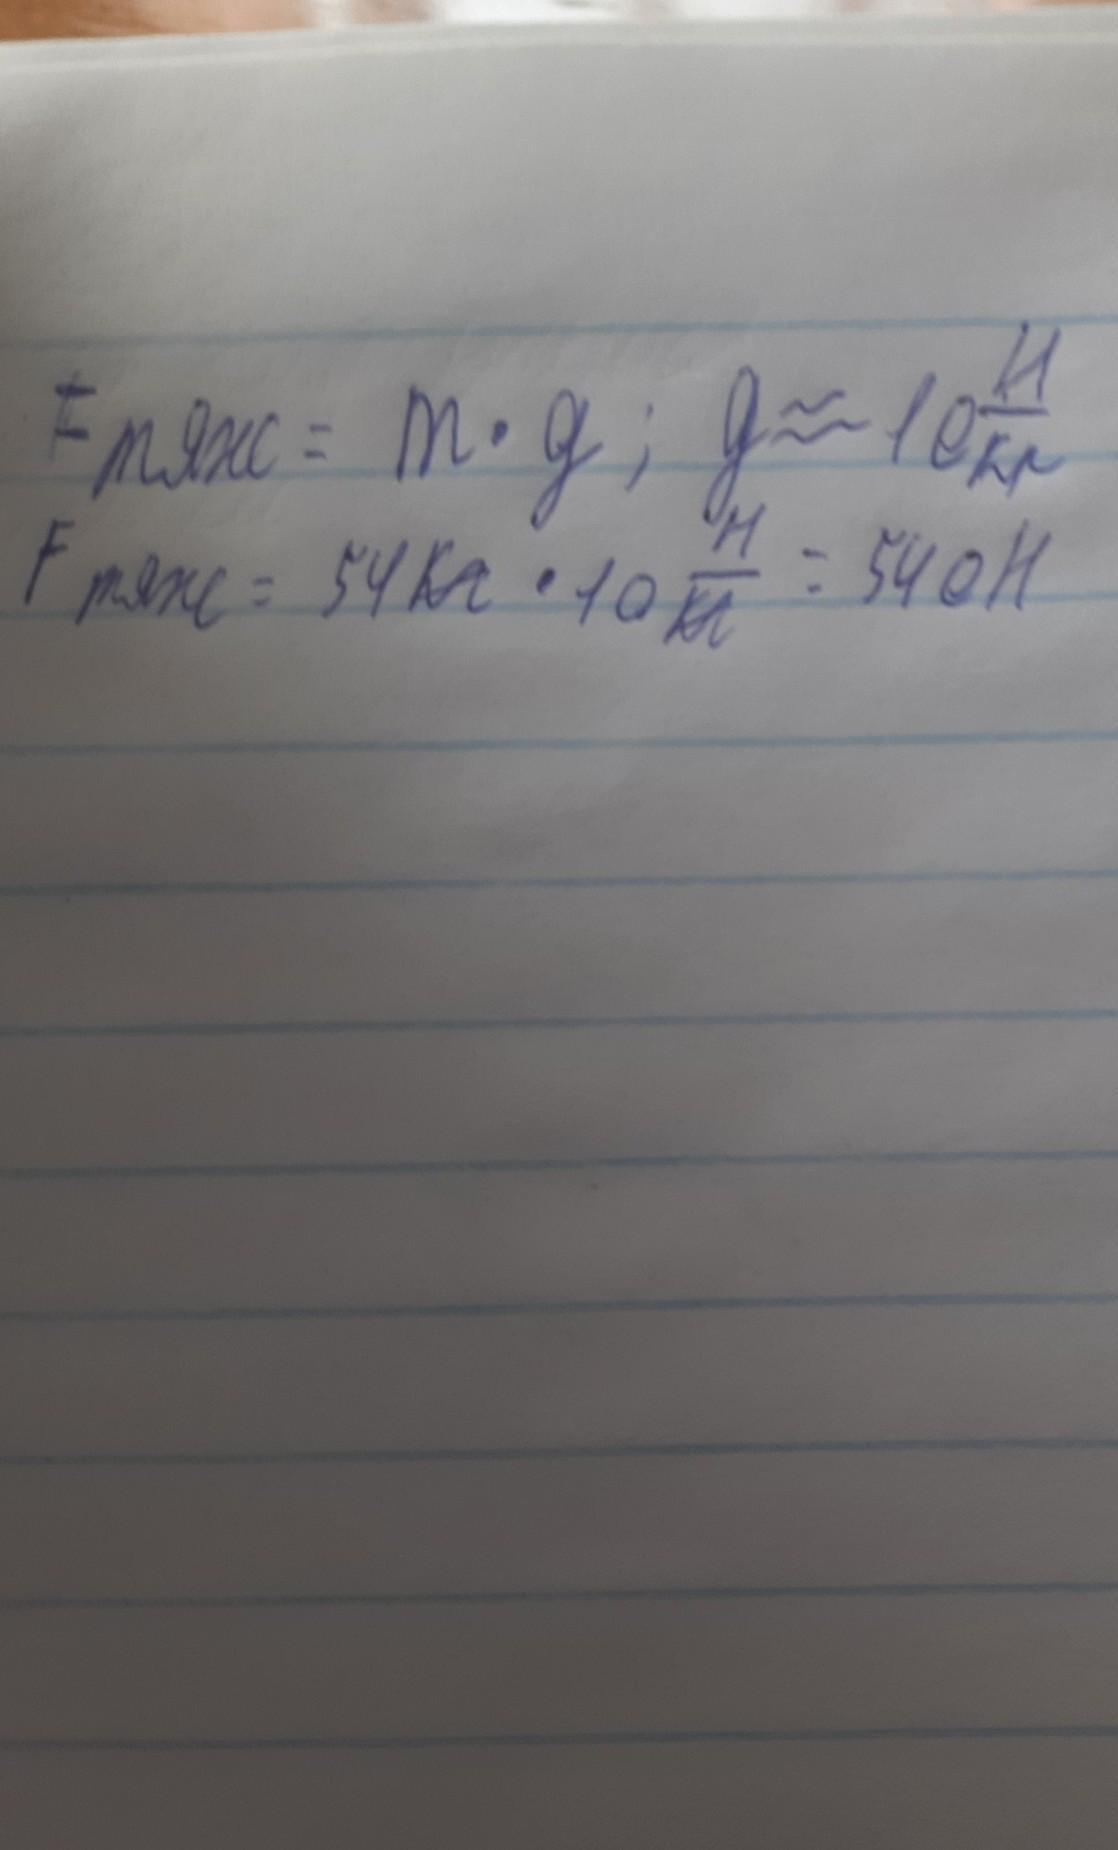 Fтяж = m · g ; g ≈ 10 Н/кг
Fтяж = 54 кг · 10 Н/кг = 540Н